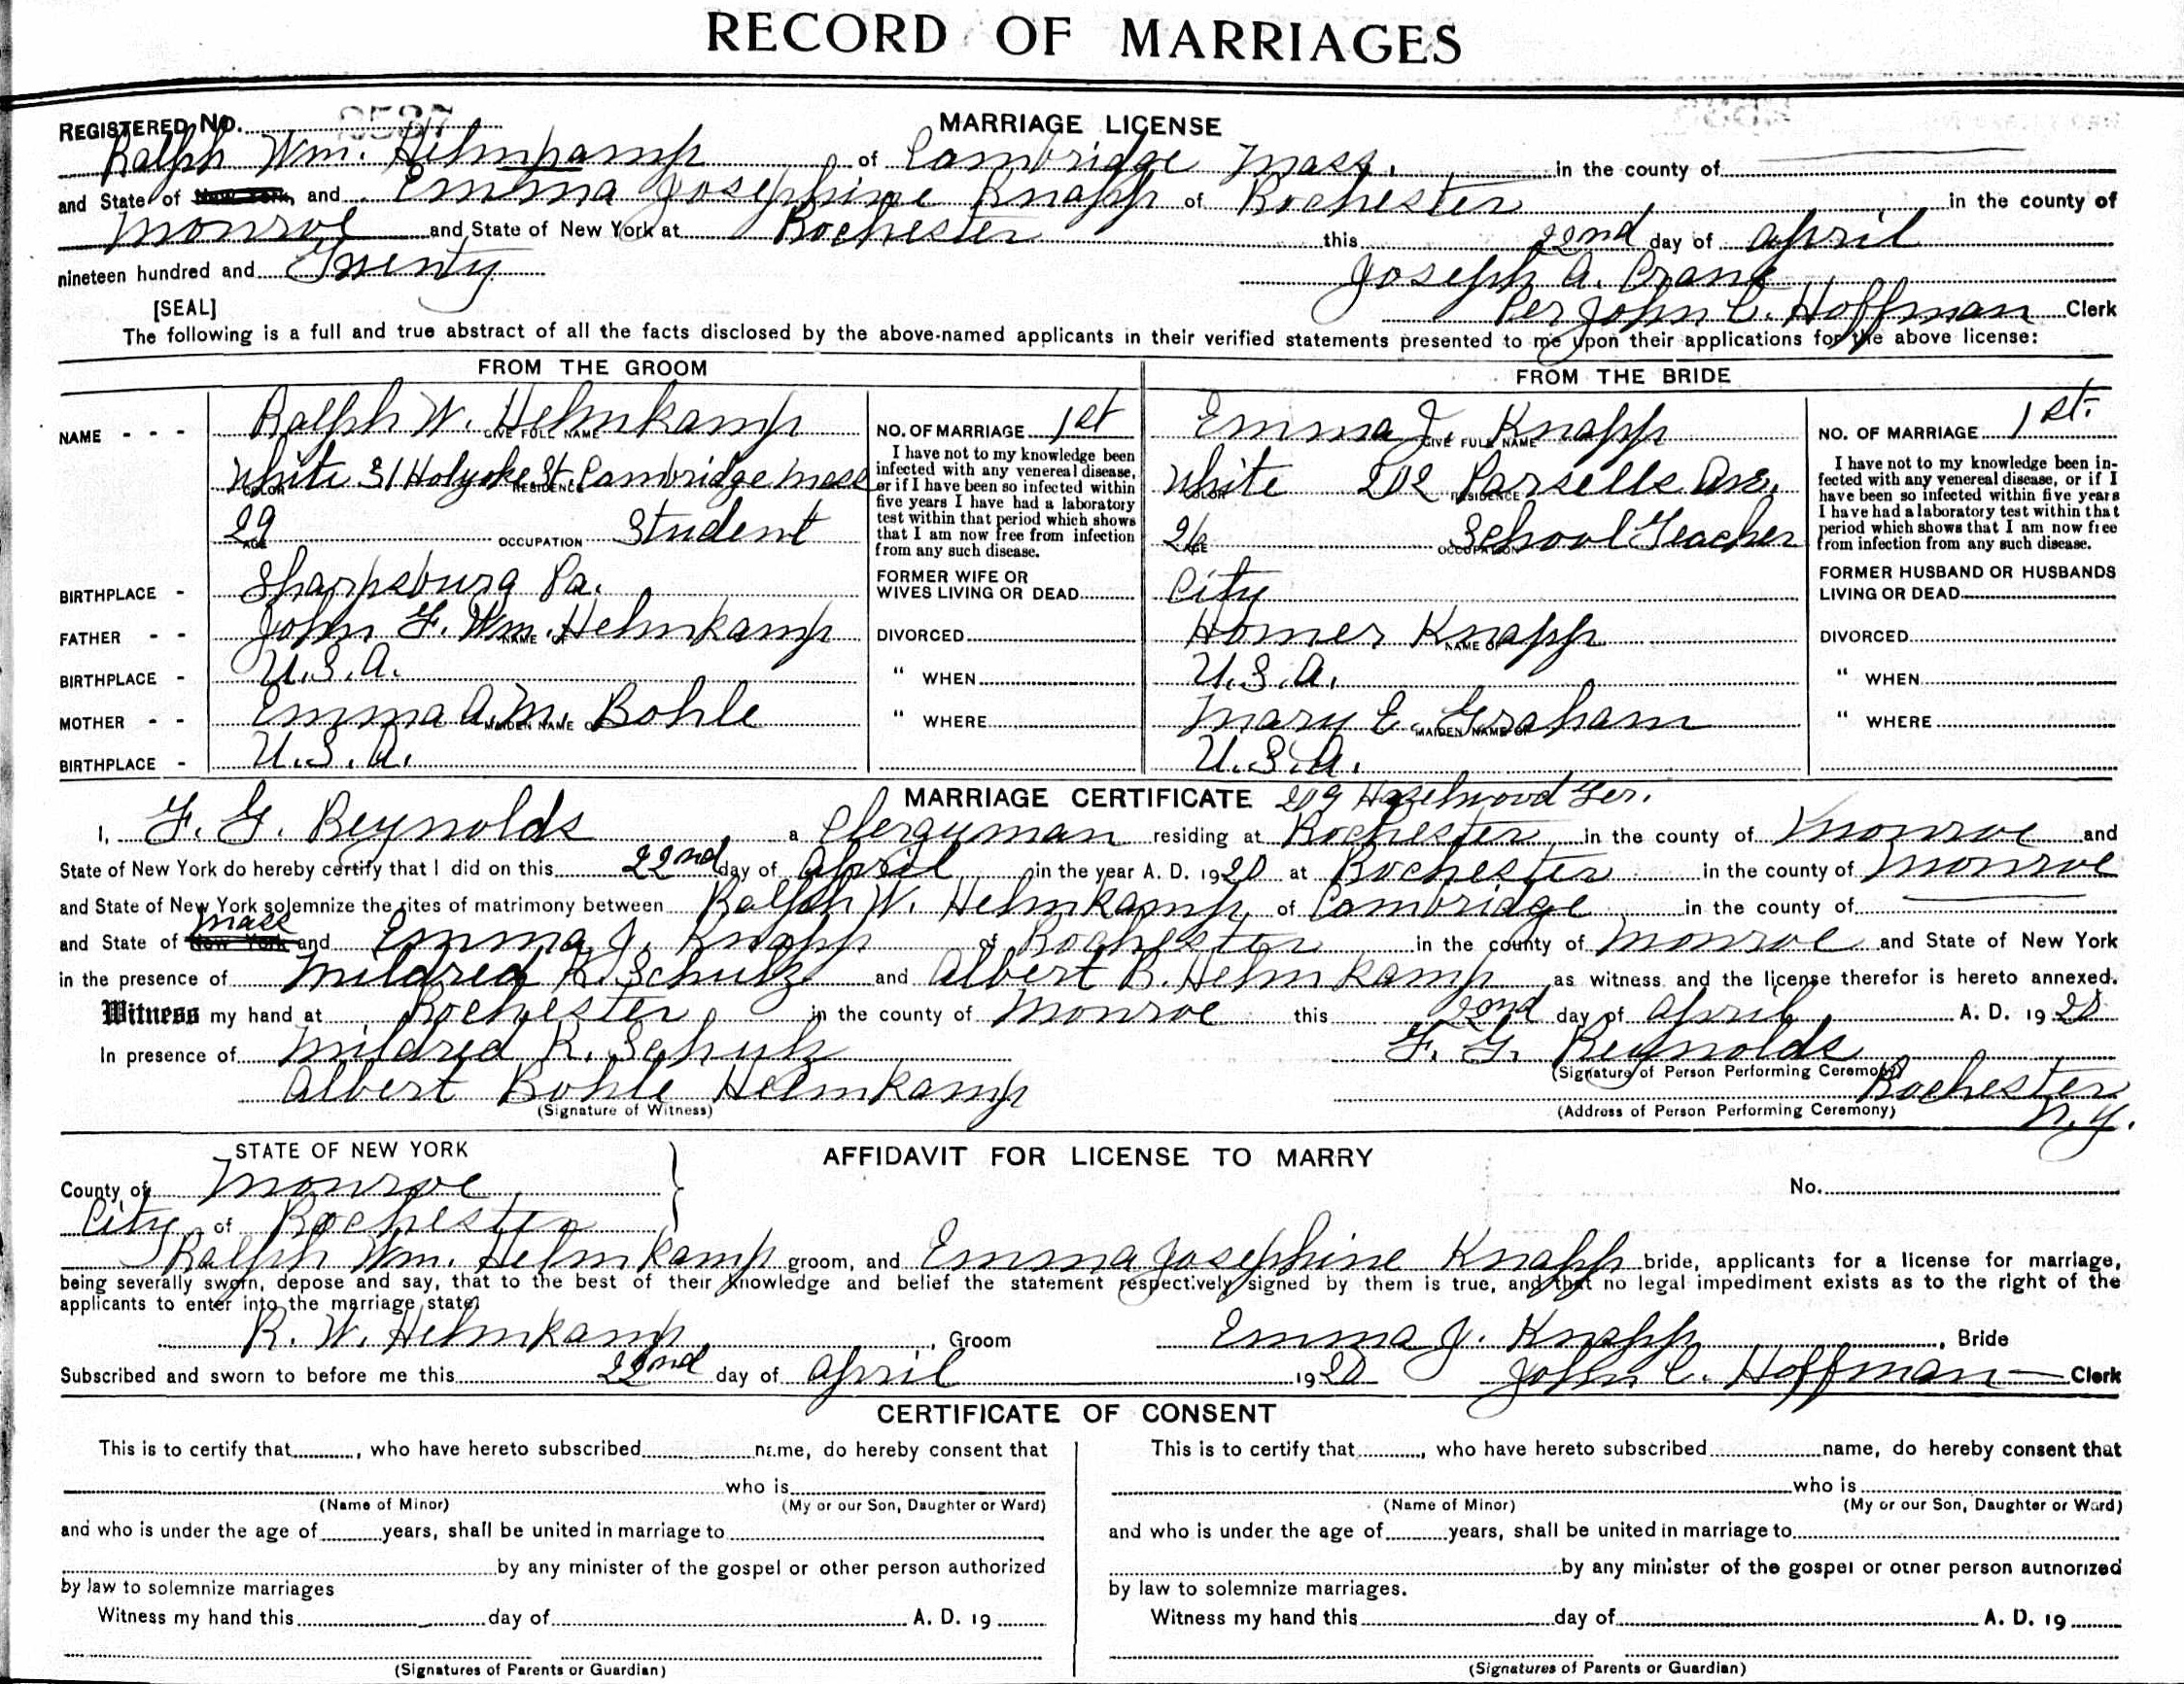 RECORD OF MARRIAGES
REGISTERED NO. MARRIAGE LICENSE
Ralph Wm. Helmkamp of Cambridge Mass. in the county of
and State of New York, and Emma Josephine Knapp of Rochester in the county of
Monroe and State of New York at Rochester this 22nd day of April
nineteen hundred and Twenty Joseph A. Crane
[SEAL] Per John C. Hoffman Clerk
The following is a full and true abstract of all the facts disclosed by the above-named applicants in their verified statements presented to me upon their applications for the above license:
FROM THE GROOM
NAME - - - Ralph W. Helmkamp
GIVE FULL NAME
White 31 Holyoke St Cambridge Mass
COLOR RESIDENCE
29 Student
AGE OCCUPATION
BIRTHPLACE - Sharpsburg Pa.
FATHER - - John F. Wm. Helmkamp
NAME OF
BIRTHPLACE - U.S.A.
MOTHER - - Emma A.M. Bohle
MAIDEN NAME OF
BIRTHPLACE - U.S.A.
NO. OF MARRIAGE 1st
I have not to my knowledge been
infected with any venereal disease,
or if I have been so infected within
five years I have had a laboratory
test within that period which shows
that I am now free from infection
from any such disease.
FORMER WIFE OR
WIVES LIVING OR DEAD
DIVORCED
" WHEN
" WHERE
FROM THE BRIDE
Emma J. Knapp
GIVE FULL NAME
White 202 Parsells Ave.
COLOR RESIDENCE
26 School Teacher
AGE OCCUPATION
City
Homer Knapp
NAME OF
U.S.A.
Mary E. Graham
MAIDEN NAME OF
U.S.A.
NO. OF MARRIAGE 1st
I have not to my knowledge been in-
fected with any venereal disease, or if I
have been so infected within five years
I have had a laboratory test within that
period which shows that I am now free
from infection from any such disease.
FORMER HUSBAND OR HUSBANDS
LIVING OR DEAD
DIVORCED
" WHEN
" WHERE
MARRIAGE CERTIFICATE 209 Hazelwood Ter.
I, F. G. Reynolds a Clergyman residing at Rochester in the county of Monroe and
State of New York do hereby certify that I did on this 22nd day of April in the year A. D. 1920 at Rochester in the county of Monroe
and State of New York solemnize the rites of matrimony between Ralph W. Helmkamp of Cambridge in the county of
Mass
and State of New York and Emma J. Knapp of Rochester in the county of Monroe and State of New York
in the presence of Mildred R. Schulz and Albert B. Helmkamp as witness and the license therefor is hereto annexed.
Witness my hand at Rochester in the county of Monroe this 22nd day of April A. D. 1920
In presence of Mildred R. Schulz F. G. Reynolds
(Signature of Person Performing Ceremony)
Albert Bohle Helmkamp Rochester
(Signature of Witness) (Address of Person Performing Ceremony) N.Y.
STATE OF NEW YORK AFFIDAVIT FOR LICENSE TO MARRY
County of Monroe No.
City of Rochester
Ralph Wm. Helmkamp groom, and Emma Josephine Knapp bride, applicants for a license for marriage,
being severally sworn, depose and say, that to the best of their knowledge and belief the statement respectively signed by them is true, and that no legal impediment exists as to the right of the
applicants to enter into the marriage state.
R. W. Helmkamp, Groom Emma J. Knapp, Bride
Subscribed and sworn to before me this 22nd day of April 1920 John C. Hoffman Clerk
CERTIFICATE OF CONSENT
This is to certify that , who have hereto subscribed name, do hereby consent that
who is
(Name of Minor) (My or our Son, Daughter or Ward)
and who is under the age of years, shall be united in marriage to
by any minister of the gospel or other person authorized
by law to solemnize marriages
Witness my hand this day of A. D. 19
(Signatures of Parents or Guardian)
This is to certify that , who have hereto subscribed name, do hereby consent that
who is
(Name of Minor) (My or our Son, Daughter or Ward)
and who is under the age of years, shall be united in marriage to
by any minister of the gospel or other person authorized
by law to solemnize marriages.
Witness my hand this day of A. D. 19
(Signatures of Parents or Guardian)